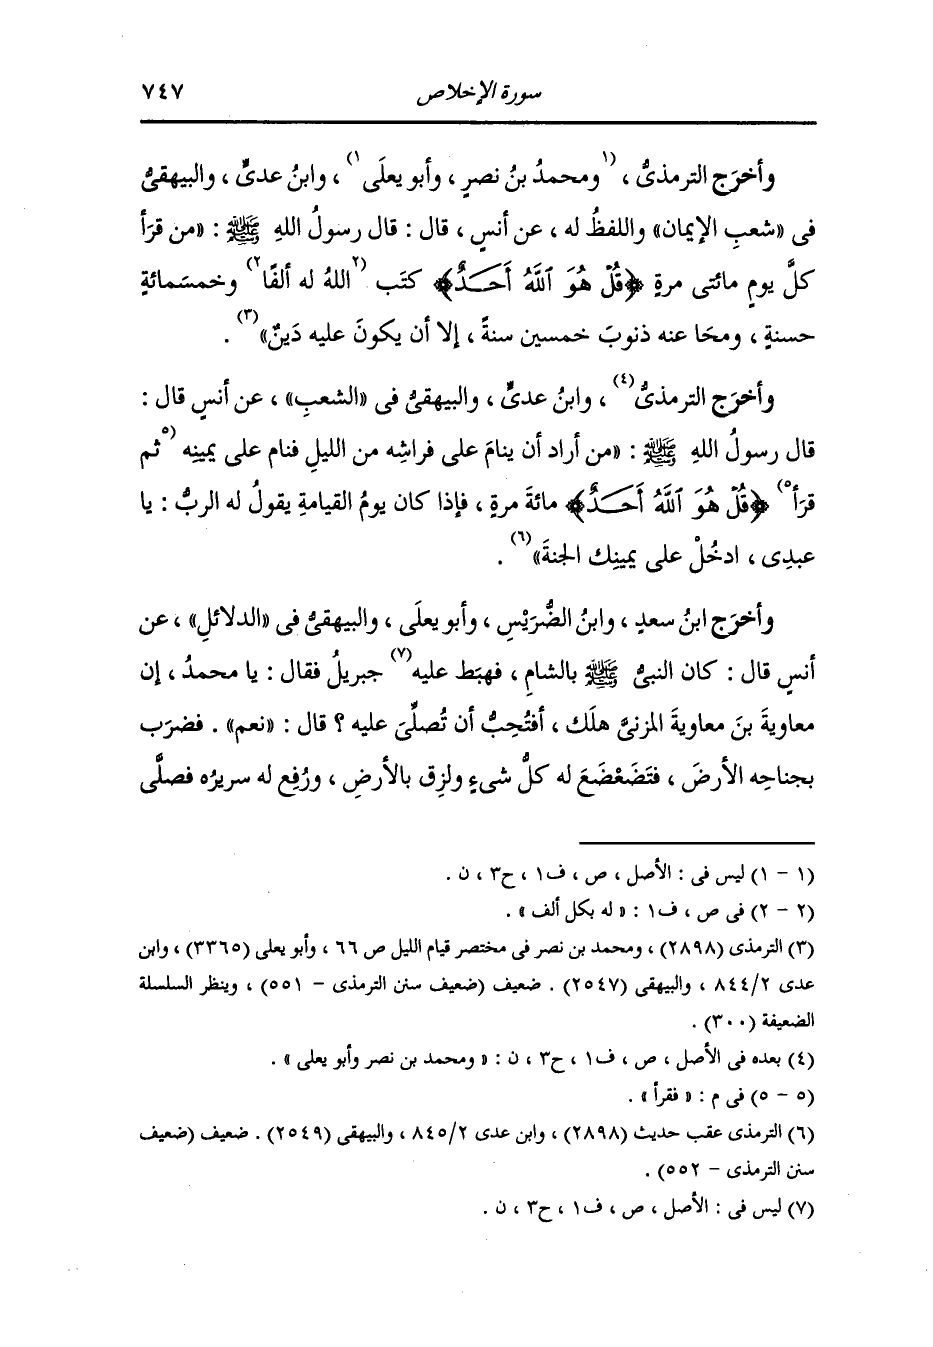 سورة الإخلاص ٧٤٧
وأخرَج الترمذىُّ ، (١ومحمدُ بنُ نصرٍ ، وأبو يعلَى١) ، وابنُ عدىٍّ ، والبيهقىُّ
فى «شعبِ الإيمان» واللفظُ له ، عن أنسٍ ، قال : قال رسولُ اللهِ ﷺ : «من قرَأ
كلَّ يومٍ مائتى مرةٍ ﴿قُلْ هُوَ ٱللَّهُ أَحَدٌ﴾ كتَب (٢اللهُ له ألفًا٢) وخمسَمائةِ
حسنةٍ ، ومحَا عنه ذنوبَ خمسين سنةً ، إلا أن يكونَ عليه دَينٌ»(٣) .
وأخرَج الترمذىُّ(٤) ، وابنُ عدىٍّ ، والبيهقىُّ فى «الشعبِ» ، عن أنسٍ قال :
قال رسولُ اللهِ ﷺ : «من أراد أن ينامَ على فراشِه من الليلِ فنام على يمينِه (٥ثم
قرَأ٥) ﴿قُلْ هُوَ ٱللَّهُ أَحَدٌ﴾ مائةَ مرةٍ ، فإذا كان يومُ القيامةِ يقولُ له الربُّ : يا
عبدِى ، ادخُلْ على يمينِك الجنةَ»(٦) .
وأخرَج ابنُ سعدٍ ، وابنُ الضُّرَيْسِ ، وأبو يعلَى ، والبيهقىُّ فى «الدلائلِ» ، عن
أنسٍ قال : كان النبىُّ ﷺ بالشامِ ، فهبَط عليه(٧) جبريلُ فقال : يا محمدُ ، إن
معاويةَ بنَ معاويةَ المزنىَّ هلَك ، أفتُحِبُّ أن تُصلِّىَ عليه ؟ قال : «نعم» . فضرَب
بجناحِه الأرضَ ، فتَضَعْضَعَ له كلُّ شىءٍ ولزِق بالأرضِ ، ورُفِع له سريرُه فصلَّى
(١ - ١) ليس فى : الأصل ، ص ، ف١ ، ح٣ ، ن .
(٢ - ٢) فى ص ، ف١ : « له بكل ألف » .
(٣) الترمذى (٢٨٩٨) ، ومحمد بن نصر فى مختصر قيام الليل ص ٦٦ ، وأبو يعلى (٣٣٦٥) ، وابن
عدى ٨٤٤/٢ ، والبيهقى (٢٥٤٧) . ضعيف (ضعيف سنن الترمذى - ٥٥١) ، وينظر السلسلة
الضعيفة (٣٠٠) .
(٤) بعده فى الأصل ، ص ، ف١ ، ح٣ ، ن : « ومحمد بن نصر وأبو يعلى » .
(٥ - ٥) فى م : « فقرأ » .
(٦) الترمذى عقب حديث (٢٨٩٨) ، وابن عدى ٨٤٥/٢ ، والبيهقى (٢٥٤٩) . ضعيف (ضعيف
سنن الترمذى - ٥٥٢) .
(٧) ليس فى : الأصل ، ص ، ف١ ، ح٣ ، ن .